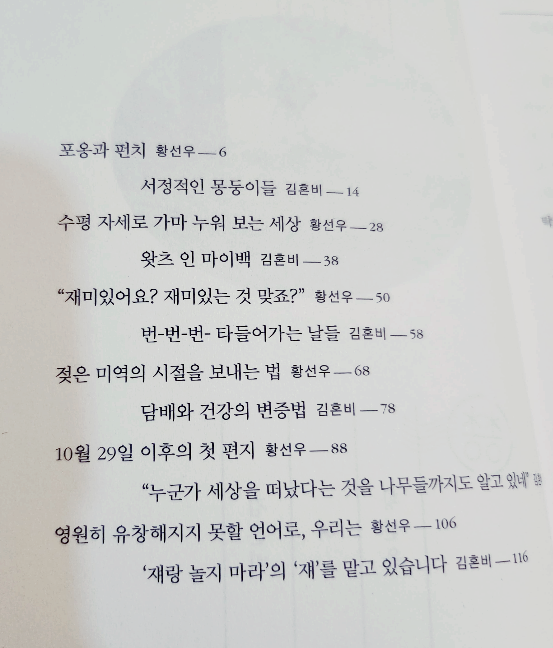 포옹과 펀치 황선우—6
서정적인 몽둥이들 김혼비—14
수평 자세로 가마 누워 보는 세상 황선우—28
왓츠 인 마이백 김혼비—38
“재미있어요? 재미있는 것 맞죠?” 황선우—50
번-번-번- 타들어가는 날들 김혼비—58
젖은 미역의 시절을 보내는 법 황선우—68
담배와 건강의 변증법 김혼비—78
10월 29일 이후의 첫 편지 황선우—88
“누군가 세상을 떠났다는 것을 나무들까지도 알고 있네”
영원히 유창해지지 못할 언어로, 우리는 황선우—106
‘쟤랑 놀지 마라’의 ‘쟤’를 맡고 있습니다 김혼비—116